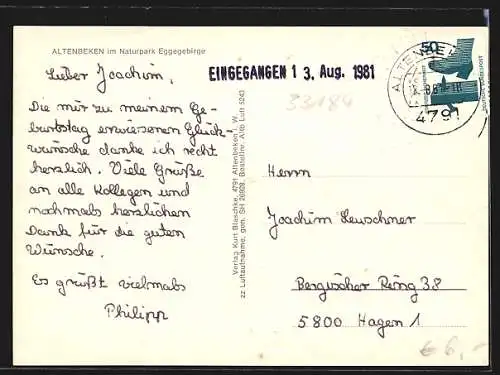 ALTENBEKEN im Naturpark Eggegebirge
Lieber Joachim,
Die mir zu meinem Ge-
burtstag erwiesenen Glück-
wünsche danke ich recht
herzlich. Viele Grüße
an alle Kollegen und
nochmals herzlichen
Dank für die guten
Wünsche.
Es grüßt vielmals
Philipp
Verlag Kurt Blaschke, 4791 Altenbeken i. W.
zz Luftaufnahme, gen. SH Bestellnr. Alb Luft 5243
EINGEGANGEN 1 3. Aug. 1981
33184
50
4791
Herrn
Joachim Leuschner
Bergischer Ring 38
5800 Hagen 1
€ 6,-